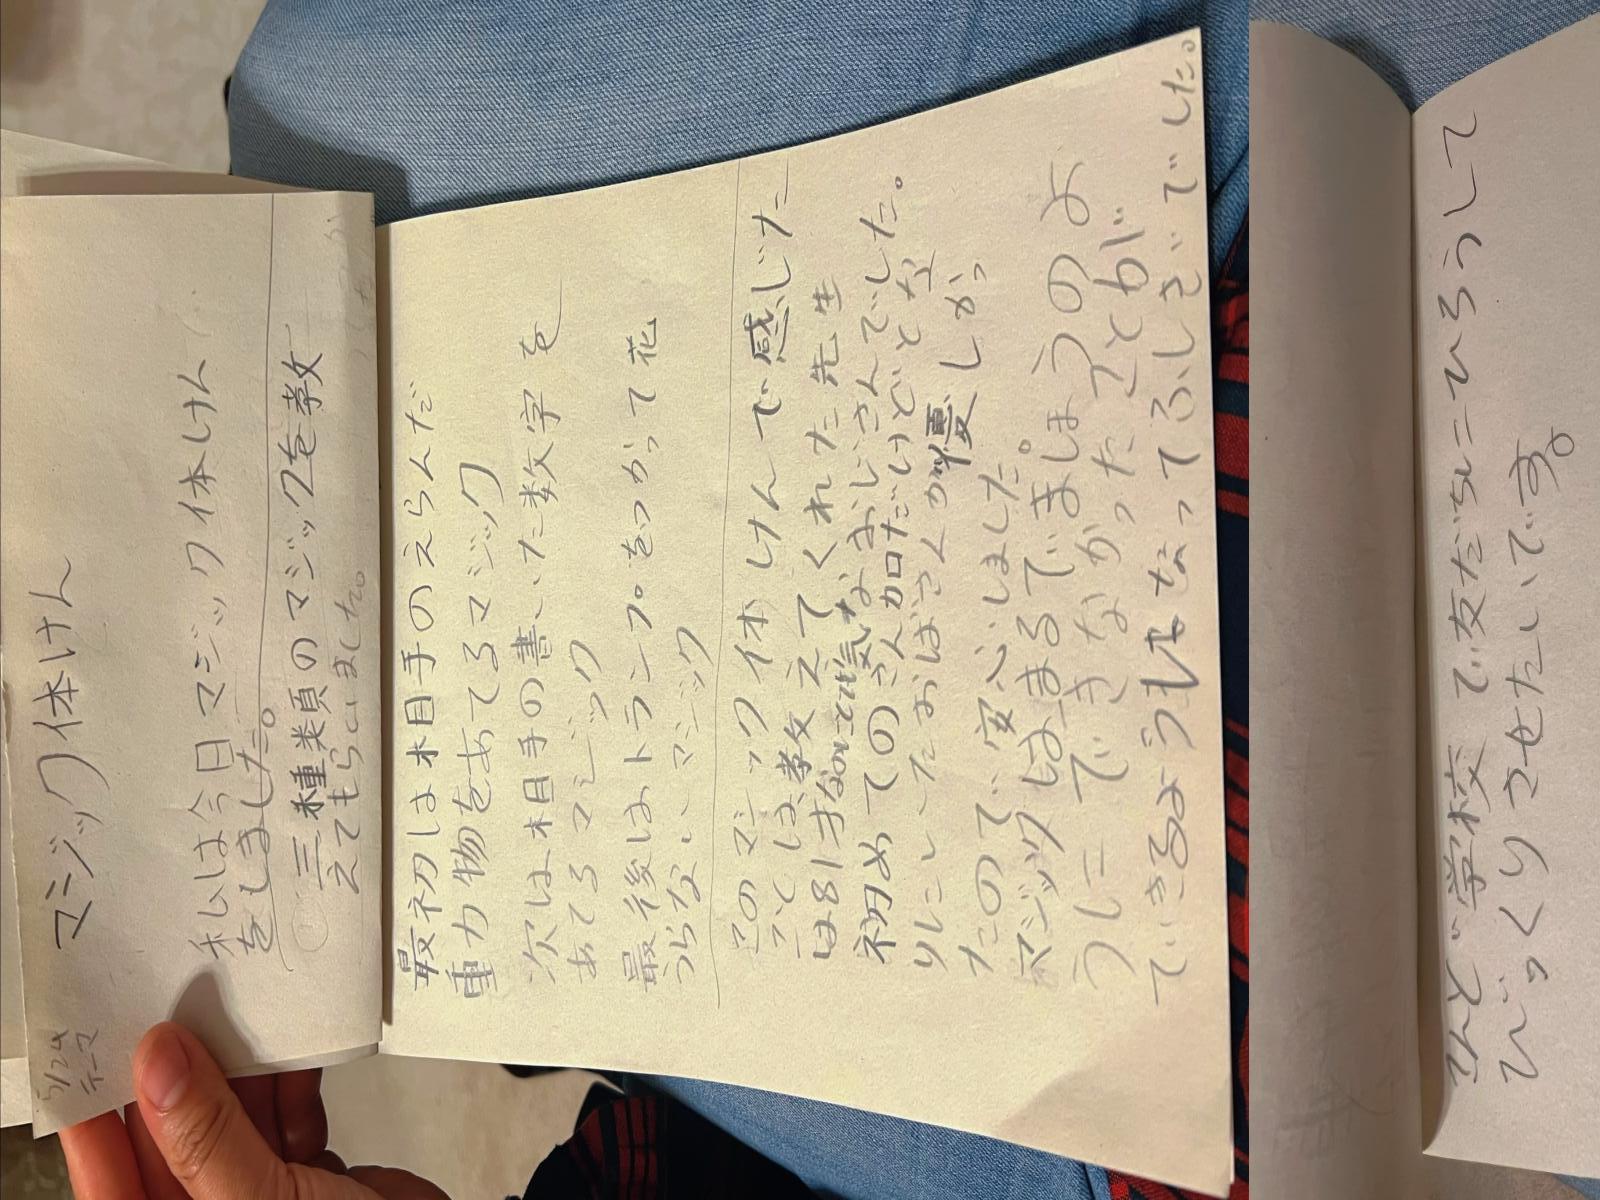 5/24
テーマ
マジック体けん
私は今日マジック体けん
をしました。
三種類のマジックを教
えてもらいました。
最初は相手のえらんだ
重力物をあてるマジック
次は相手の書いた数字を
あてるマジック
最後はトランプをつかって花
うらないマジック
このマジック体けんで感じた
ことは、教えてくれた先生
は81才なのにとても元気なおじいさんでした。
初めてのさん加だけどとな
りにいたおばさんが優しかっ
たので、安心しました。
マジックはまるでまほうのよ
うにできなかったことが
できるようになってふしぎでした。
こんど学校で友だちにひろうして
びっくりさせたいです。